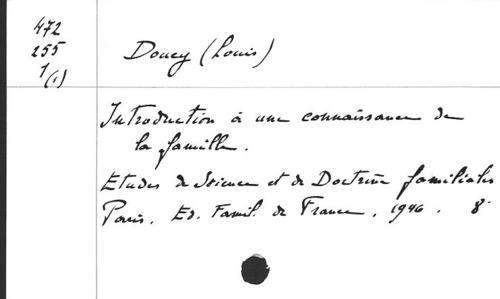 472
255
1(1)
Doucy (Louis)
Introduction à une connaissance de
la famille.
Etudes de Science et de Doctrine familiales
Paris. Ed. Famil. de France. 1946. 8°